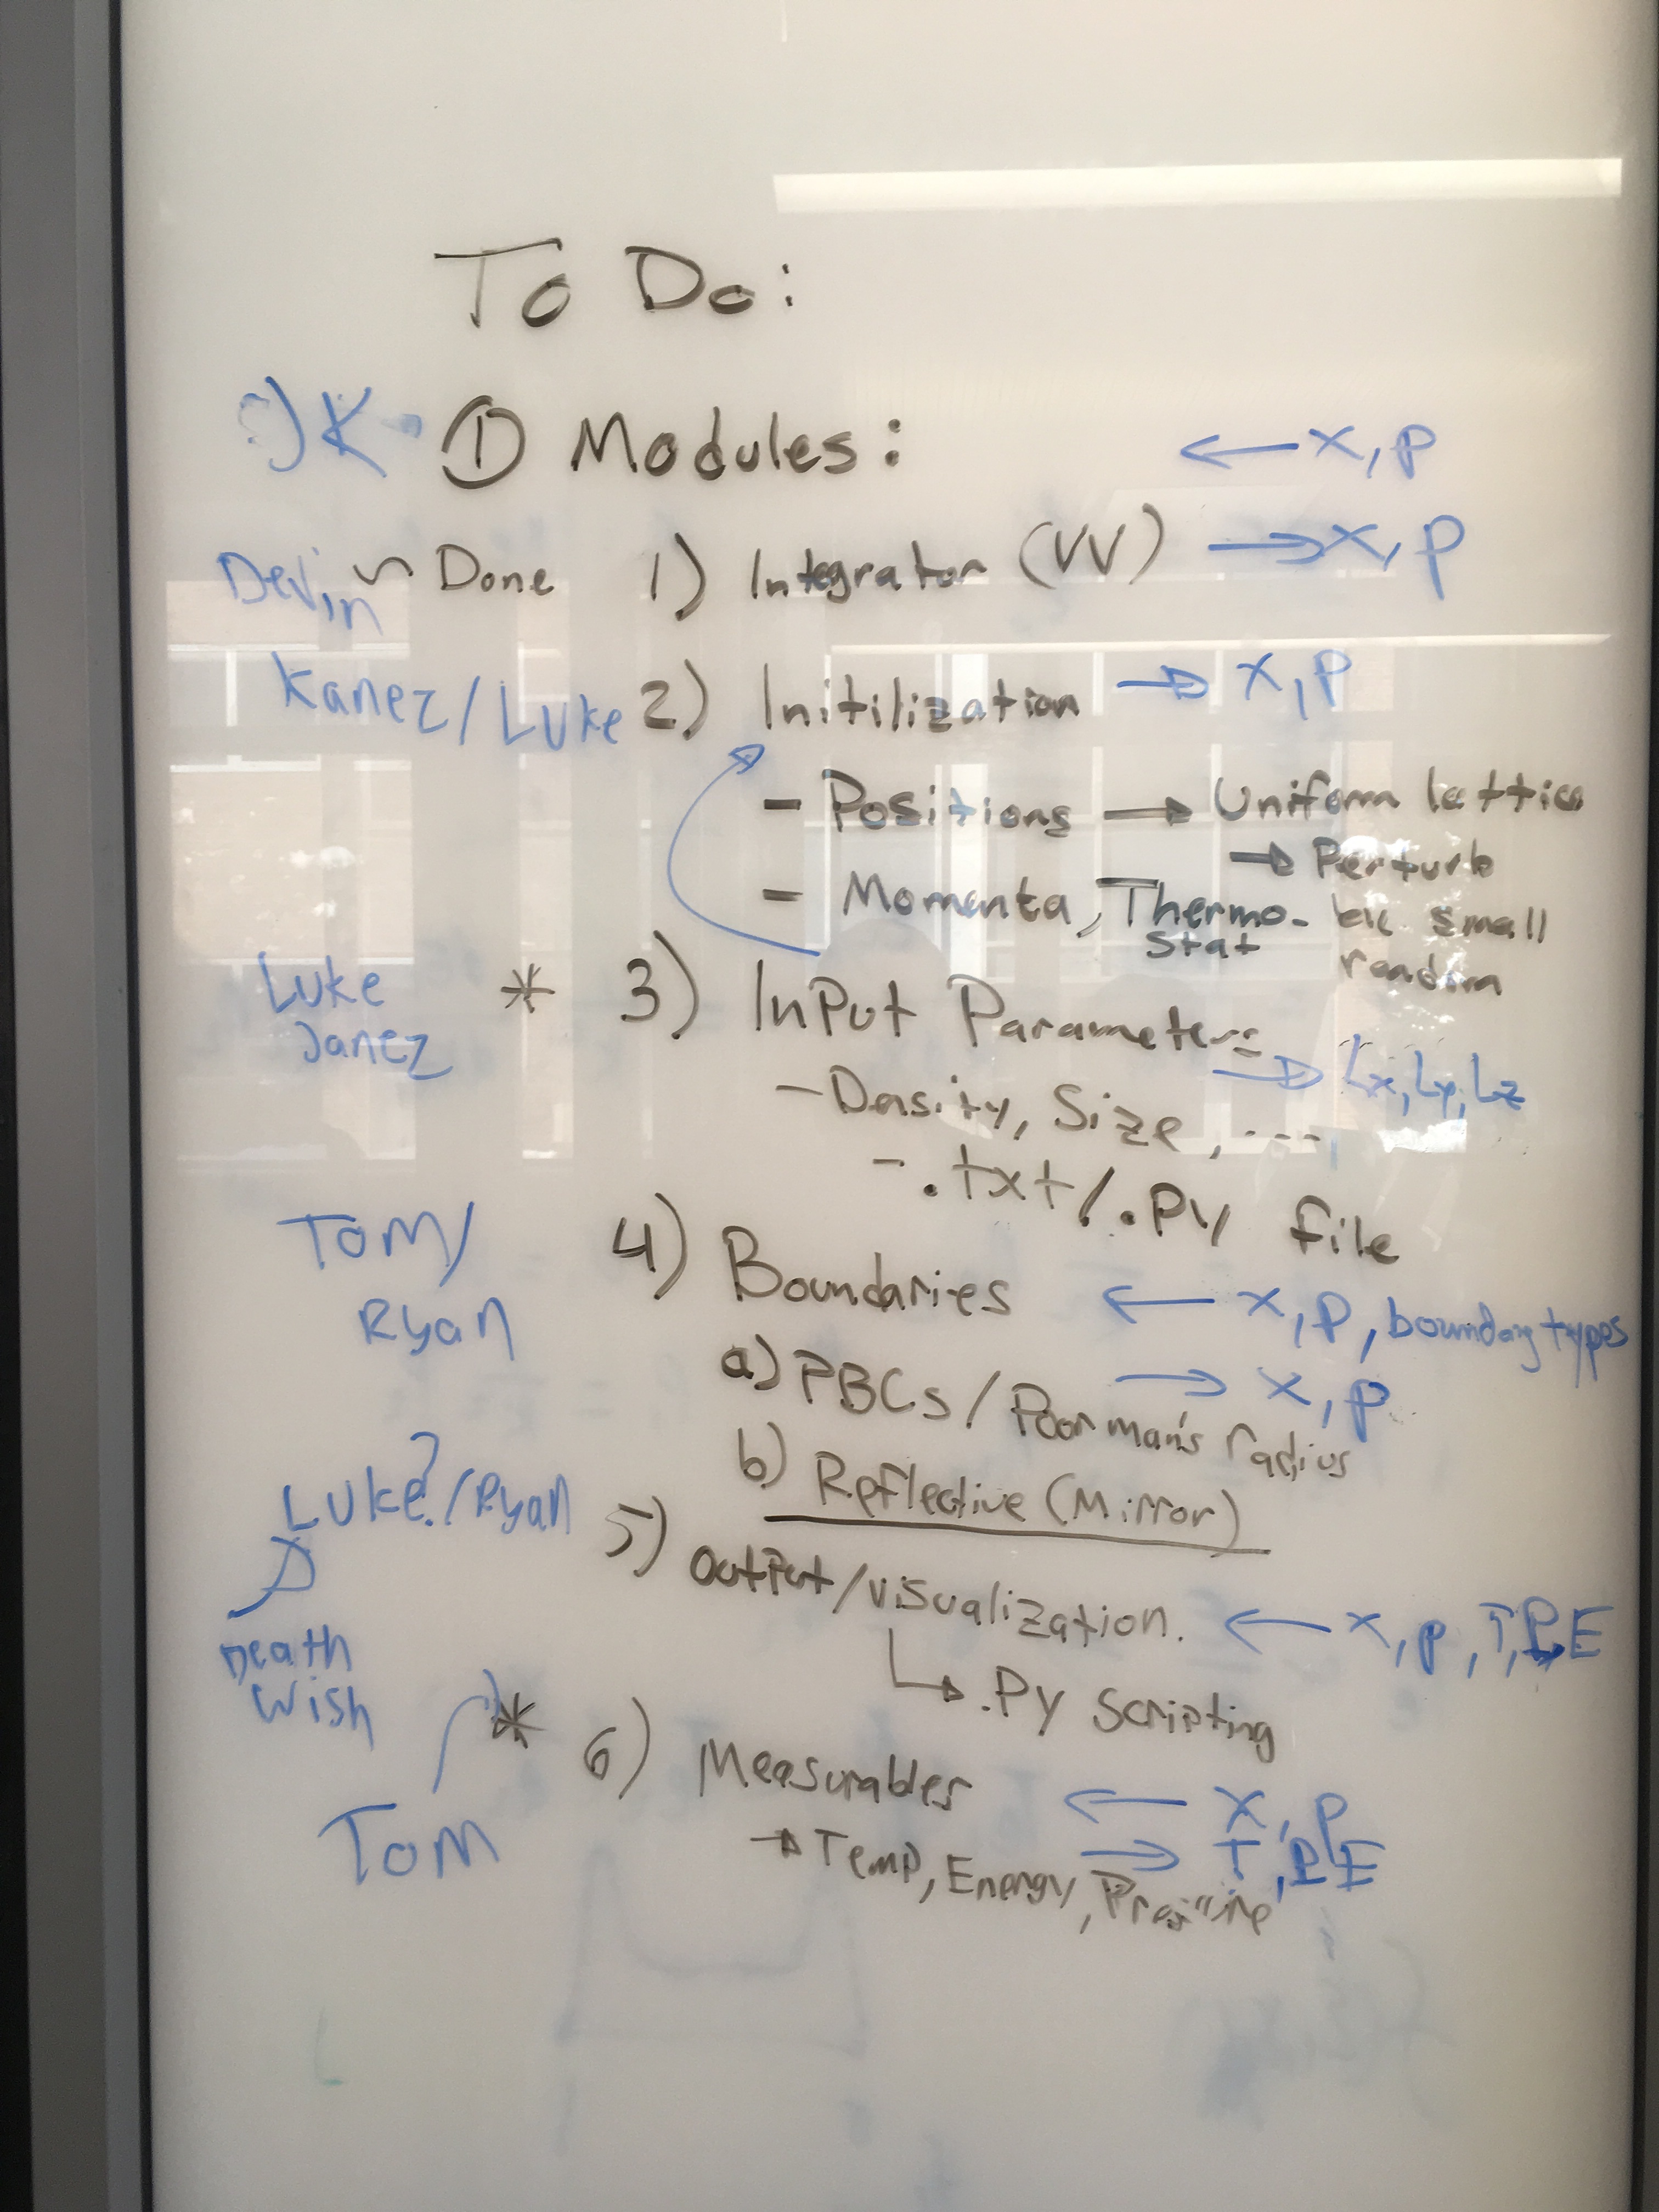 To Do:
K ① Modules: ← x, p
Devin ~ Done 1) Integrator (VV) → x, p
Kanez/Luke 2) Initilization → x, p
- Positions → Uniform lattice
→ Perturb
- Momenta, Thermo- small
stat random
Luke * 3) InPut Parameters
Janez → Lx, Ly, Lz
- Density, Size, ....
- .txt/.Py file
Tom/ 4) Boundaries ← x, p, boundary types
Ryan
a) PBCs/Poor man's radius → x, p
b) Reflective (Mirror)
Luke?/Ryan 5) OutPut/visualization. ← x, p, T, P, E
Death ↳ .Py Scripting
Wish
* 6) Measurables ← x, p
Tom → Temp, Energy, Pressure → T, P, E